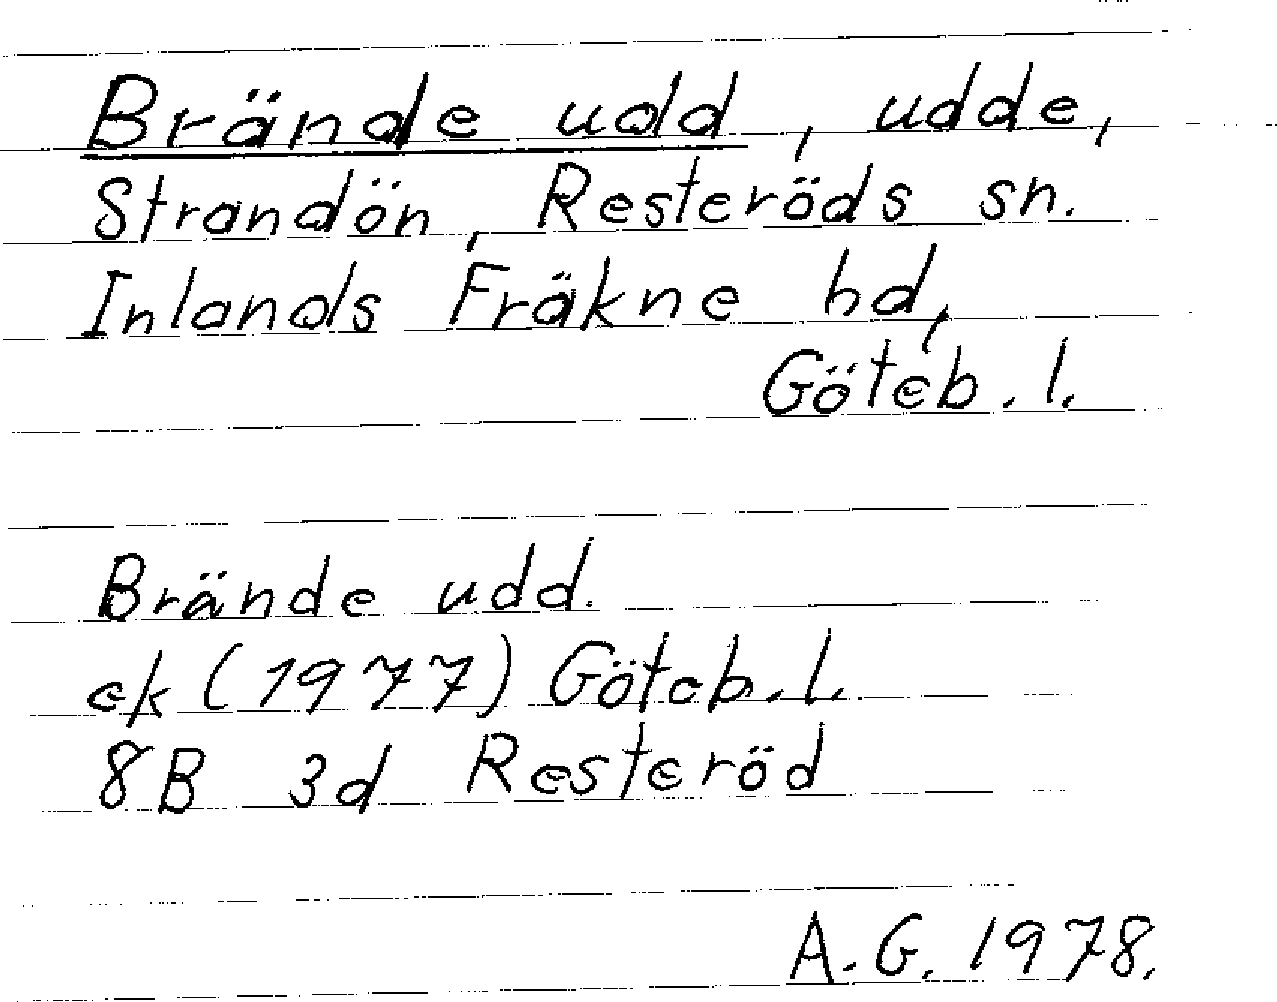 Brände udd, udde,
Strandön, Resteröds sn.
Inlands Fräkne hd,
Göteb. l.
Brände udd.
ek (1977) Göteb. l.
8B 3d Resteröd
A.G. 1978.